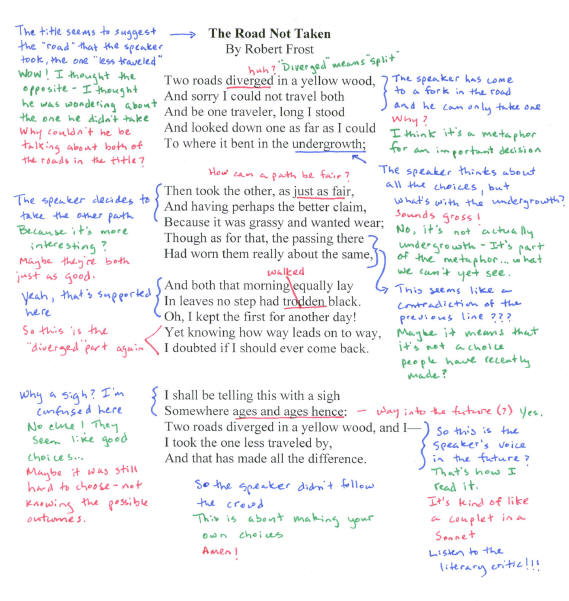 The title seems to suggest
the "road" that the speaker
took, the one "less traveled"
Wow! I thought the
opposite - I thought
he was wondering about
the one he didn't take
Why couldn't he be
talking about both of
the roads in the title?
The Road Not Taken
By Robert Frost
huh? "Diverged" means "split"
Two roads diverged in a yellow wood,
And sorry I could not travel both
And be one traveler, long I stood
And looked down one as far as I could
To where it bent in the undergrowth;
The speaker has come
to a fork in the road
and he can only take one
Why?
I think it's a metaphor
for an important decision
The speaker thinks about
all the choices, but
what's with the undergrowth?
Sounds gross!
No, it's not actually
undergrowth - It's part
of the metaphor... what
we can't yet see.
How can a path be fair?
Then took the other, as just as fair,
And having perhaps the better claim,
Because it was grassy and wanted wear;
Though as for that, the passing there
Had worn them really about the same,
The speaker decides to
take the other path
Because it's more
interesting?
Maybe they're both
just as good.
yeah, that's supported
here
So this is the
"diverged" part again
walked
And both that morning equally lay
In leaves no step had trodden black.
Oh, I kept the first for another day!
Yet knowing how way leads on to way,
I doubted if I should ever come back.
This seems like a
contradiction of the
previous line ???
Maybe it means that
it's not a choice
people have recently
made?
Why a sigh? I'm
confused here
No clue! They
seem like good
choices...
Maybe it was still
hard to choose - not
knowing the possible
outcomes.
I shall be telling this with a sigh
Somewhere ages and ages hence: - way into the future (?) Yes.
Two roads diverged in a yellow wood, and I—
I took the one less traveled by,
And that has made all the difference.
So this is the
speaker's voice
in the future?
That's how I
read it.
It's kind of like
a couplet in a
Sonnet
Listen to the
literary critic!!!
So the speaker didn't follow
the crowd
This is about making your
own choices
Amen!